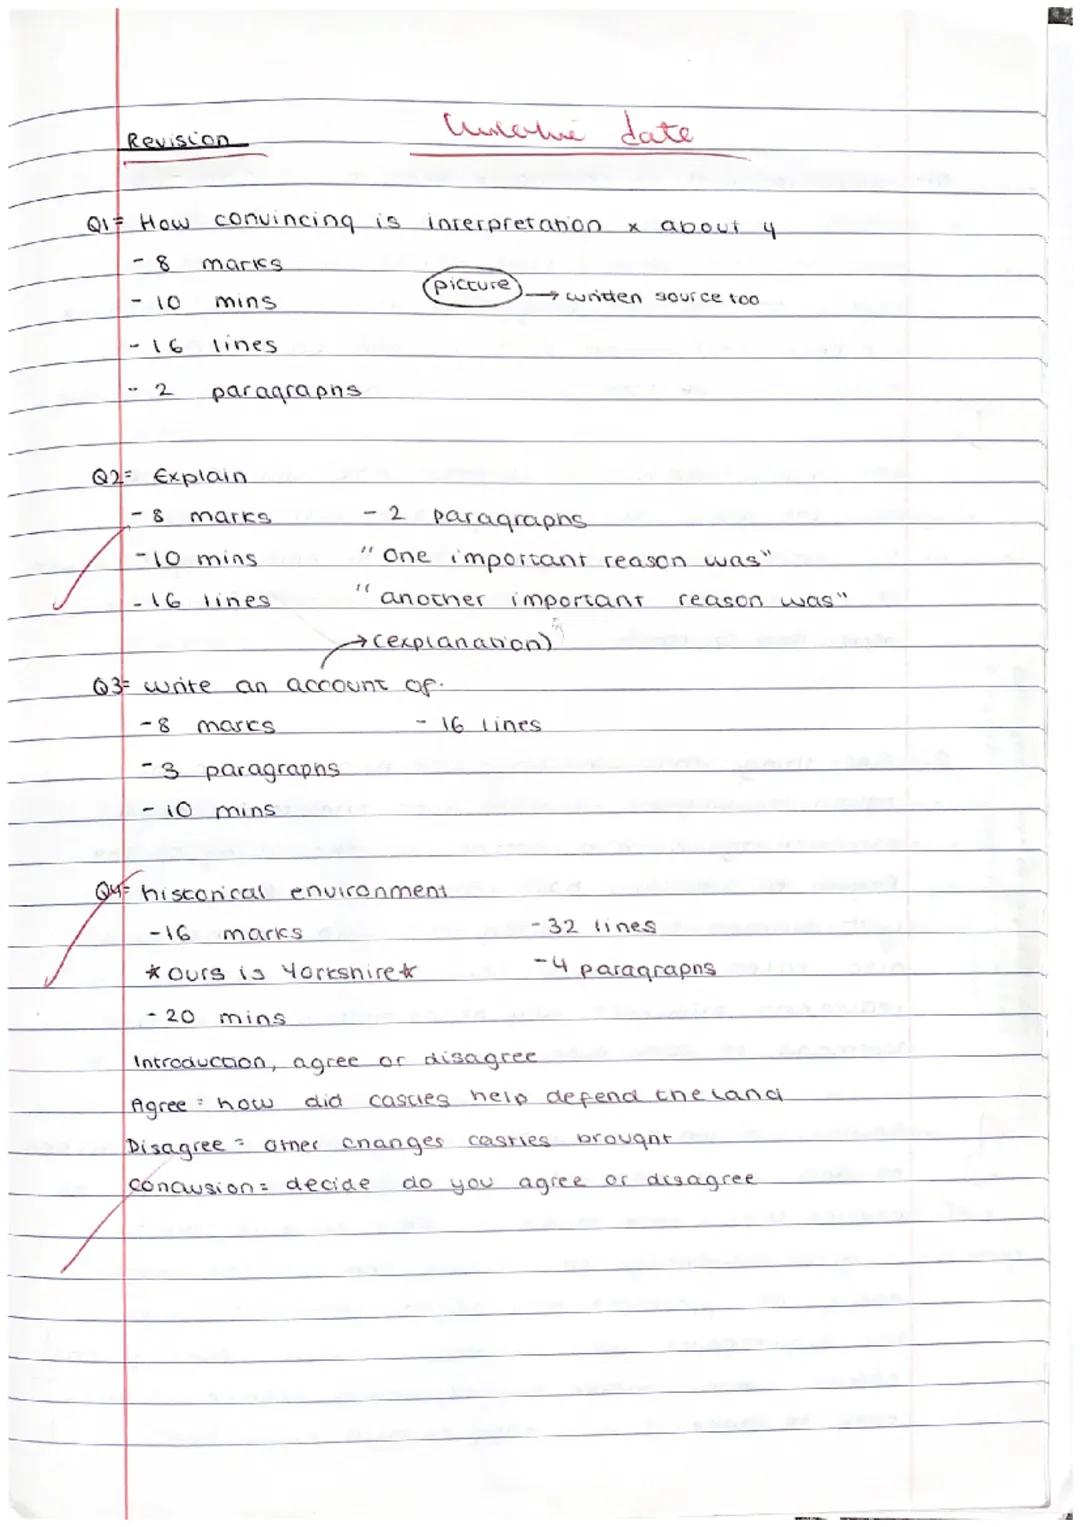 Revision
date
Q1= How convincing is interpretation x about y
- 8 marks
picture → written source too
- 10 mins
- 16 lines
- 2 paragraphs
Q2= Explain
- 8 marks - 2 paragraphs
- 10 mins "One important reason was"
- 16 lines "another important reason was"
→ (explanation)
Q3= write an account of.
- 8 marks - 16 lines
- 3 paragraphs
- 10 mins
Q4= historical environment
- 16 marks - 32 lines
* ours is Yorkshire * - 4 paragraphs
- 20 mins
Introduction, agree or disagree
Agree = how did castles help defend the land
Disagree = other changes castles brought
Conclusion = decide do you agree or disagree